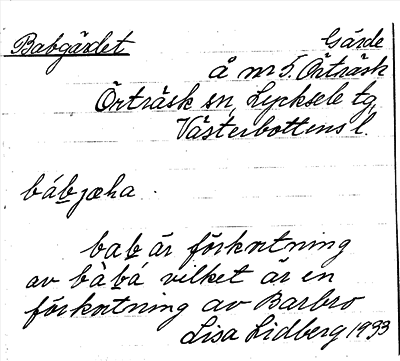 Babgärdet
Gärde
å nr 5. Örträsk
Örträsk sn, Lycksele tg
Västerbottens l.
bábjæha.
bab är förkortning
av bàbá vilket är en
förkortning av Barbro
Lisa Lidberg 1933